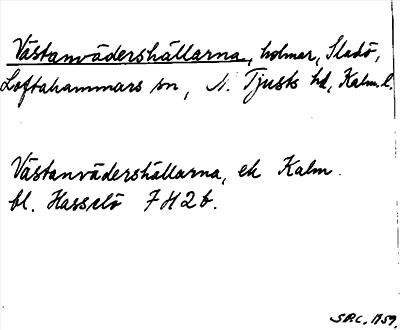 Västanvädershällarna, holmar, Sladö,
Loftahammars sn, N. Tjusts hd, Kalm. l.
Västanvädershällarna, ek Kalm.
bl. Hasselö 7H2b.
1959.